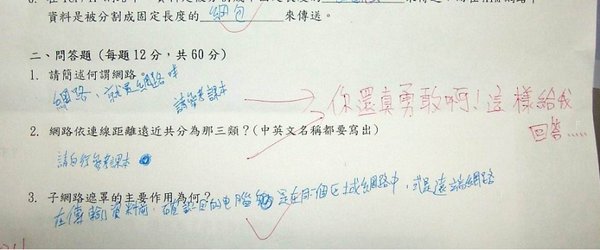 資料是被分割成固定長度的 網包 來傳送。
二、問答題(每題12分,共60分)
1. 請簡述何謂網路
網路,就是網路咩
請參考課本
你還真勇敢啊!這樣給我
回答.....
2. 網路依連線距離遠近共分為那三類?(中英文名稱都要寫出)
請自行參考課本
3. 子網路遮罩的主要作用為何?
在傳輸資料前,確認目的電腦 是在同個區域網路中,或是遠端網路